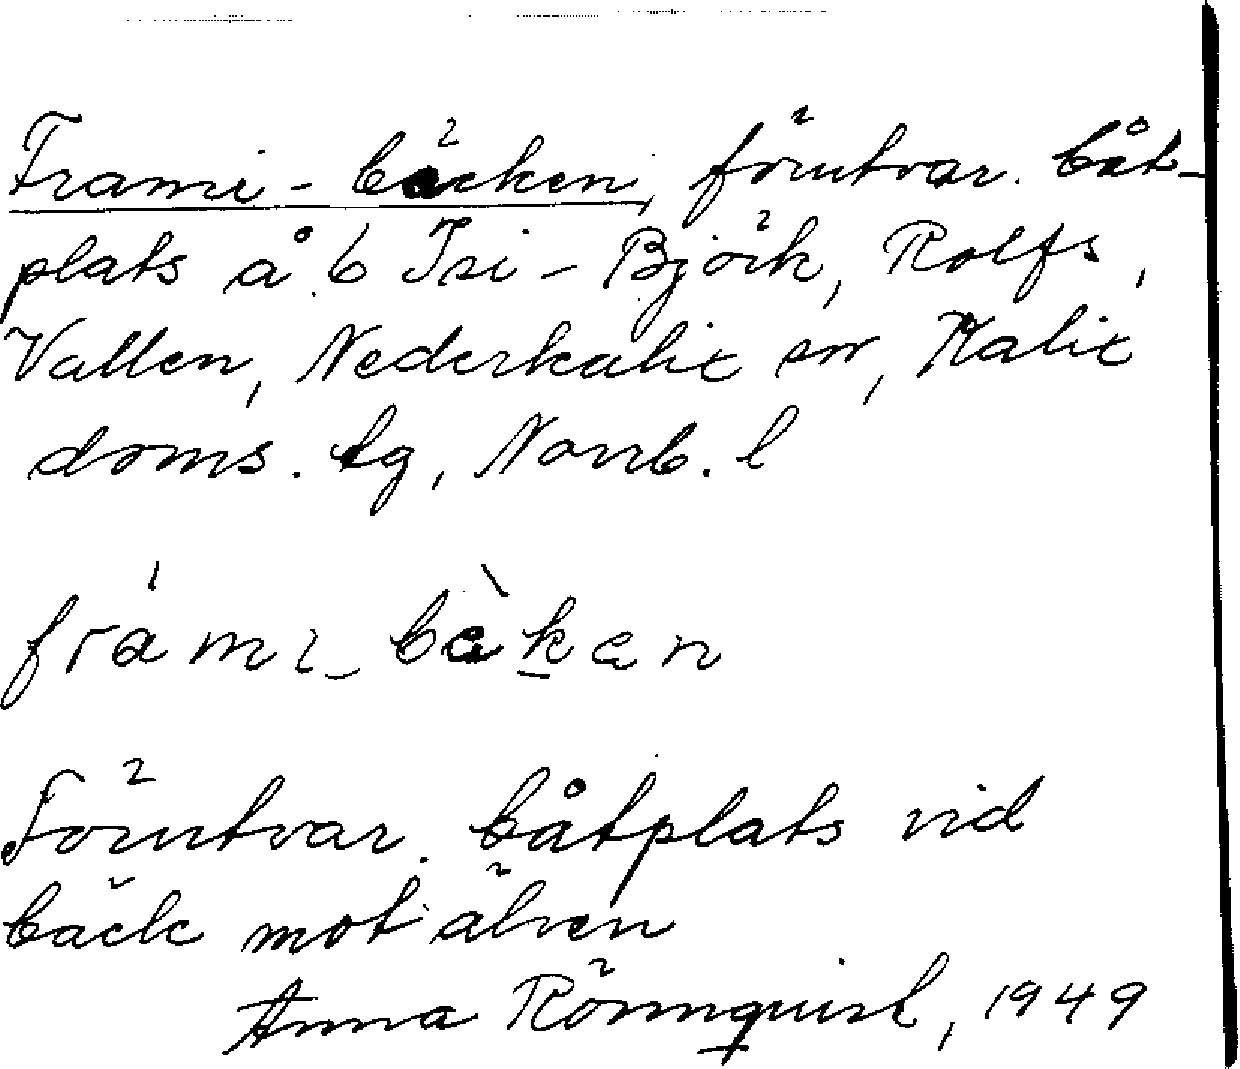 Frami-bäcken, förutvar. båt-
plats å 6 Isi-Björk, Rolfs,
Vallen, Nederkalix sn, Kalix
doms. tg, Norrb. l
frami-bäkan
Förutvar. båtplats vid
bäck mot älven
Anna Rönnquist, 1949